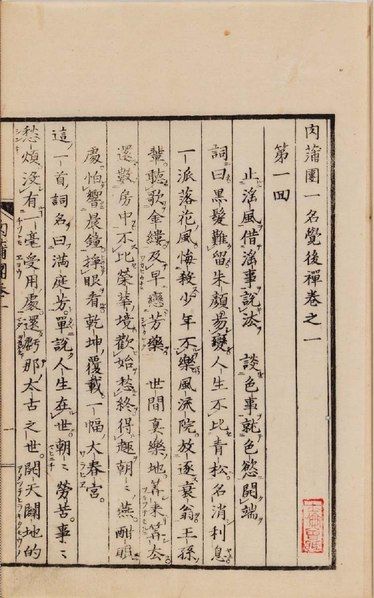 肉蒲團一名覺後禪卷之一
第一回
止淫風借淫事說法　談色事就色慾開端
詞曰黑髮難留朱顏易變人生不比青松名消利息
一派落花風悔殺少年不樂風流院放逐衰翁王孫
輩聽歌金縷及早戀芳藂　世間真樂地筭來筭去
還數房中不比榮華境歡始愁終得趣朝〻燕酣眠
處怕響晨鐘掙眼看乾坤覆載一幅大春宮
這一首詞名曰滿庭芳單說人生在世朝〻勞苦事〻
愁煩沒有一毫受用處還虧那太古之世開天闢地的
肉蒲團卷一